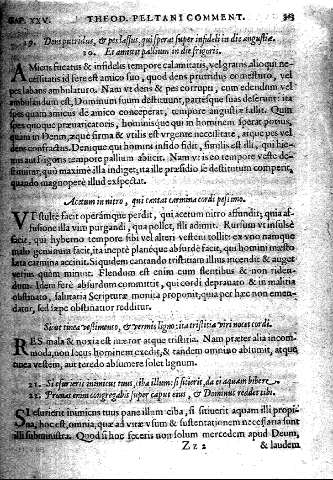 CAP. XXV. THEOD. PELTANI COMMENT. 363
19. Dens putridus, & pes lassus, qui sperat super infideli in die angustiæ.
20. Et amittit pallium in die frigoris.
AMicus fucatus & infidelis tempore calamitatis, vel gratis alioqui ne-
cessitatis id fere est amico suo, quod dens putridus comesturo, vel
pes labans ambulaturo. Nam vt dens & pes corrupti, cum edendum vel
ambulandum est, Dominum suum destituunt, partesque suas deserunt: ita
spes quam amicus de amico conceperat, tempore angustiæ fallit. Qui
spes quoque præuaricatoris, hominisque qui in homines sperat potius,
quam in Deum, æque firma & vtilis est vrgente necessitate, atque pes vel
dens confractus. Denique qui homini infido fidit, similis est illi, qui hie-
mis aut frigoris tempore pallium abiicit. Nam vt is eo tempore veste de-
stituitur, quo maximè illa indiget; ita ille præsidio se destitutum comperit,
quando magnopere illud expectat.
Acetum in nitro, qui cantat carmina cordi pessimo.
VT stultè facit operámque perdit, qui acetum nitro affundit; quia af-
fusione illa vim purgandi, qua pollet, illi adimit. Rursum vt insulsè
facit, qui hyberno tempore sibi vel alteri vestem tollit: ex vno namque
malo geminum facit, ita ineptè planéque absurdè facit, qui homini mœsto
læta carmina accinit. Siquidem cantando tristitiam illius incendit & auget
verius quàm minuit. Flendum est enim cum flentibus & non riden-
dum. Idem ferè absurdum committit, qui cordi deprauato & in malitia
obstinato, salutaria Scripturæ monita proponit; quia per hæc non emen-
datur, sed sæpe obstinatior redditur.
Sicut tinea vestimento, & vermis ligno: ita tristitia viri nocet cordi.
RES mala & noxia est mæror atque tristitia. Nam præter alia incom-
moda, non secus hominem exedit, & tandem omnino absumit, atque
tinea vestem, aut teredo absumere solet lignum.
21. Si esurierit inimicus tuus, ciba illum: si sitierit, da ei aquam bibere.
22. Prunas enim congregabis super caput eius, & Dominus reddet tibi.
SI esurierit inimicus tuus pane illum ciba, si sitiuerit aquam illi propi-
na, hoc est, omnia, quæ ad vitæ vsum & sustentationem necessaria sunt
illi subministra. Quod si hoc feceris non solum mercedem apud Deum,
Zz 2 & laudem